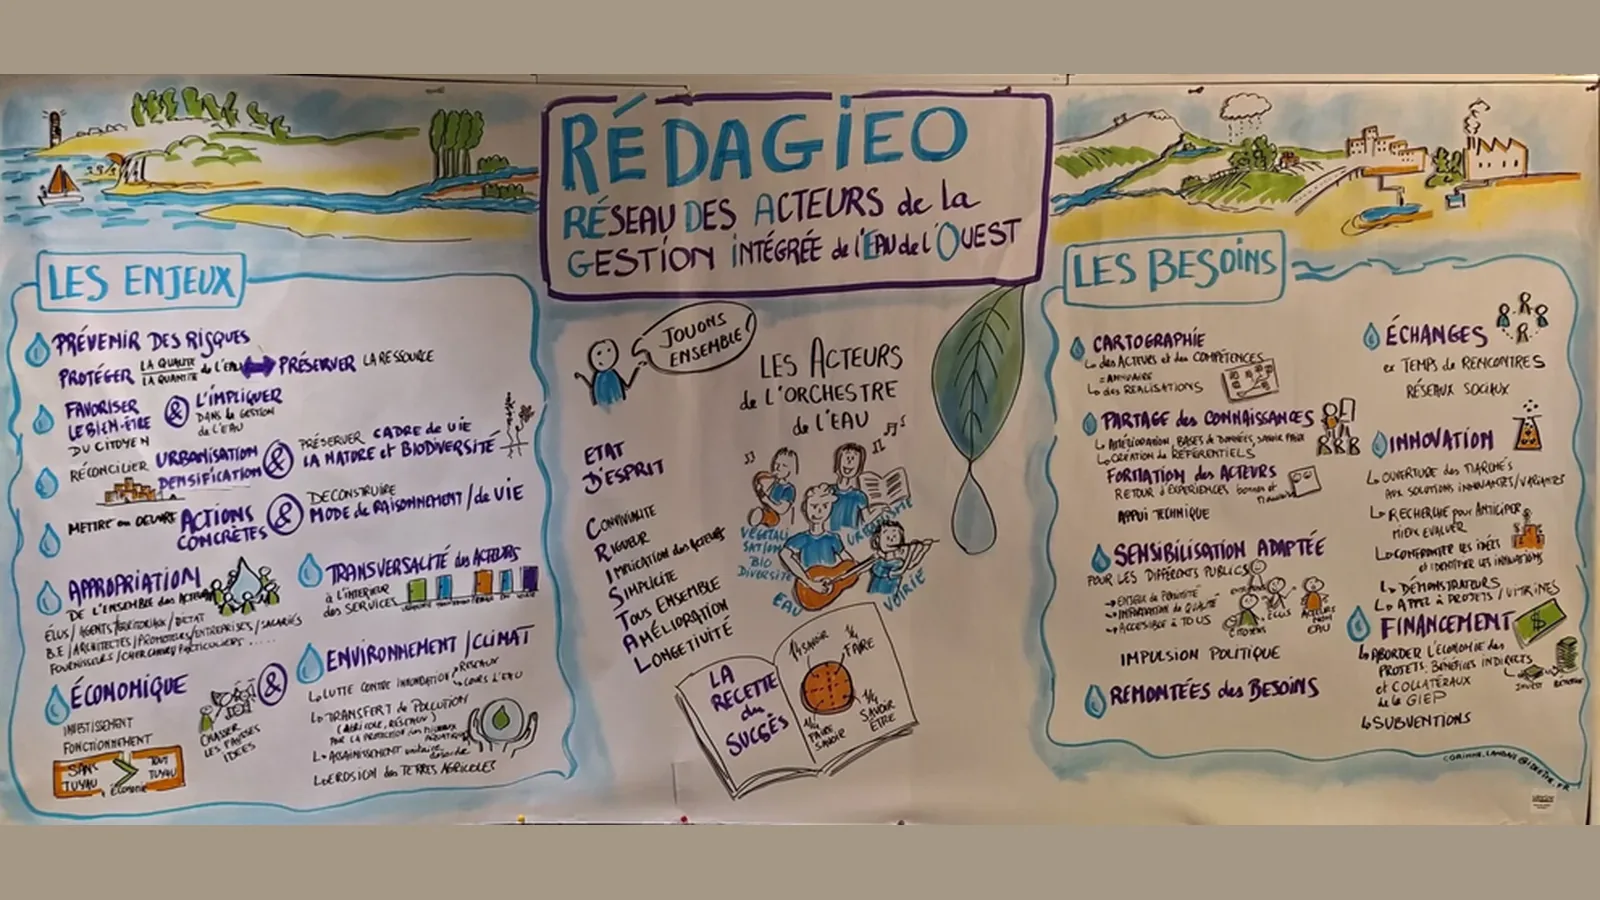 RÉDAGIEO
RÉSEAU DES ACTEURS de la
GESTION INTÉGRÉE de l'EAU de l'OUEST
LES ENJEUX
PRÉVENIR DES RISQUES
PROTÉGER LA QUALITÉ de l'EAU PRÉSERVER LA RESSOURCE
LA QUANTITÉ
FAVORISER & L'IMPLIQUER
LE BIEN-ÊTRE DANS la GESTION
DU CITOYEN de l'EAU
RÉCONCILIER URBANISATION & PRÉSERVER CADRE de VIE
DENSIFICATION LA NATURE et BIODIVERSITÉ
METTRE en OEUVRE ACTIONS & DECONSTRUIRE
CONCRÈTES MODE de RAISONNEMENT / de VIE
APPROPRIATION
DE L'ENSEMBLE des ACTEURS
ÉLUS / AGENTS TERRITORIAUX / ÉTAT
B.E / ARCHITECTES / PROMOTEURS / ENTREPRISES / SALARIÉS
FOURNISSEURS / CHERCHEURS / PARTICULIERS .....
ÉCONOMIQUE &
INVESTISSEMENT
FONCTIONNEMENT
CHASSER
LES FAUSSES
IDÉES
SANS TUYAU > TOUT TUYAU
ÉCONOMIE
TRANSVERSALITÉ des ACTEURS
à L'INTERIEUR
des SERVICES
ENVIRONNEMENT / CLIMAT
LUTTE CONTRE INONDATION RESEAUX
COURS D'EAU
TRANSFERT de POLLUTION
(AGRICOLE, RÉSEAUX)
POUR LA PROTECTION des MILIEUX
AQUATIQUES
ASSAINISSEMENT
EROSION des TERRES AGRICOLES
JOUONS
ENSEMBLE!
LES ACTEURS
de L'ORCHESTRE
de l'EAU
ETAT
D'ESPRIT
CONVIVIALITE
RIGUEUR
IMPLICATION des ACTEURS
SIMPLICITE
TOUS ENSEMBLE
AMÉLIORATION
LONGETIVITÉ
VÉGÉTALI
SATION
BIO
DIVERSITÉ
URBANISME
EAU
VOIRIE
LA
RECETTE
du
SUCCÈS
1/4 SAVOIR
1/4 FAIRE
1/4 FAIRE SAVOIR
1/4 SAVOIR ÊTRE
LES BESOINS
CARTOGRAPHIE
des ACTEURS et des COMPÉTENCES
= ANNUAIRE
des REALISATIONS
PARTAGE des CONNAISSANCES
AMÉLIORATION, BASES de DONNÉES, SAVOIR FAIRE
CRÉATION de RÉFÉRENTIELS
FORMATION des ACTEURS
RETOUR d'EXPÉRIENCES bonnes et mauvaises
APPUI TECHNIQUE
SENSIBILISATION ADAPTÉE
POUR LES DIFFÉRENTS PUBLICS
INFORMATION de QUALITÉ
ACCESSIBLE à TOUS
CITOYENS
ÉLUS
ACTEURS
NON
EAU
IMPULSION POLITIQUE
REMONTÉES des BESOINS
ÉCHANGES
ex TEMPS de RENCONTRES
RÉSEAUX SOCIAUX
INNOVATION
OUVERTURE des MARCHÉS
AUX SOLUTIONS INNOVANTES / VARIANTES
RECHERCHE pour ANTICIPER
MIEUX EVALUER
CONFRONTER les IDÉES
et IDENTIFIER les INNOVATIONS
DÉMONSTRATEURS
APPEL à PROJETS / VITRINES
FINANCEMENT
$
ABORDER l'ÉCONOMIE des
PROJETS: BÉNÉFICES INDIRECTS
et COLLATÉRAUX
de la GIEP
INVEST
SUBVENTIONS